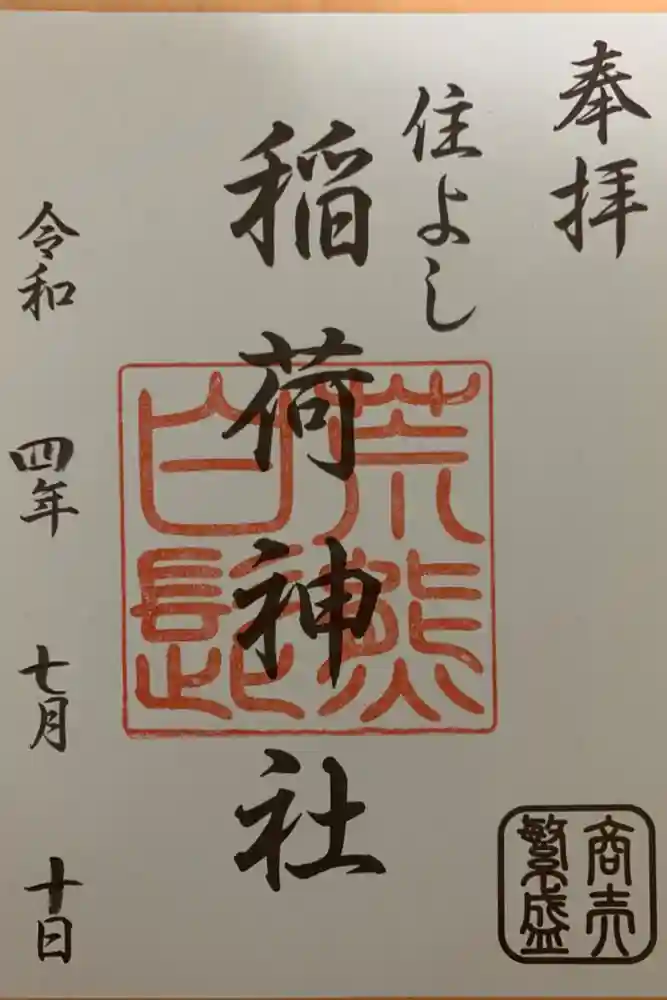 奉拝
住よし
稲荷神社
荒熊
白髭
令和四年七月十日
商売
繁盛